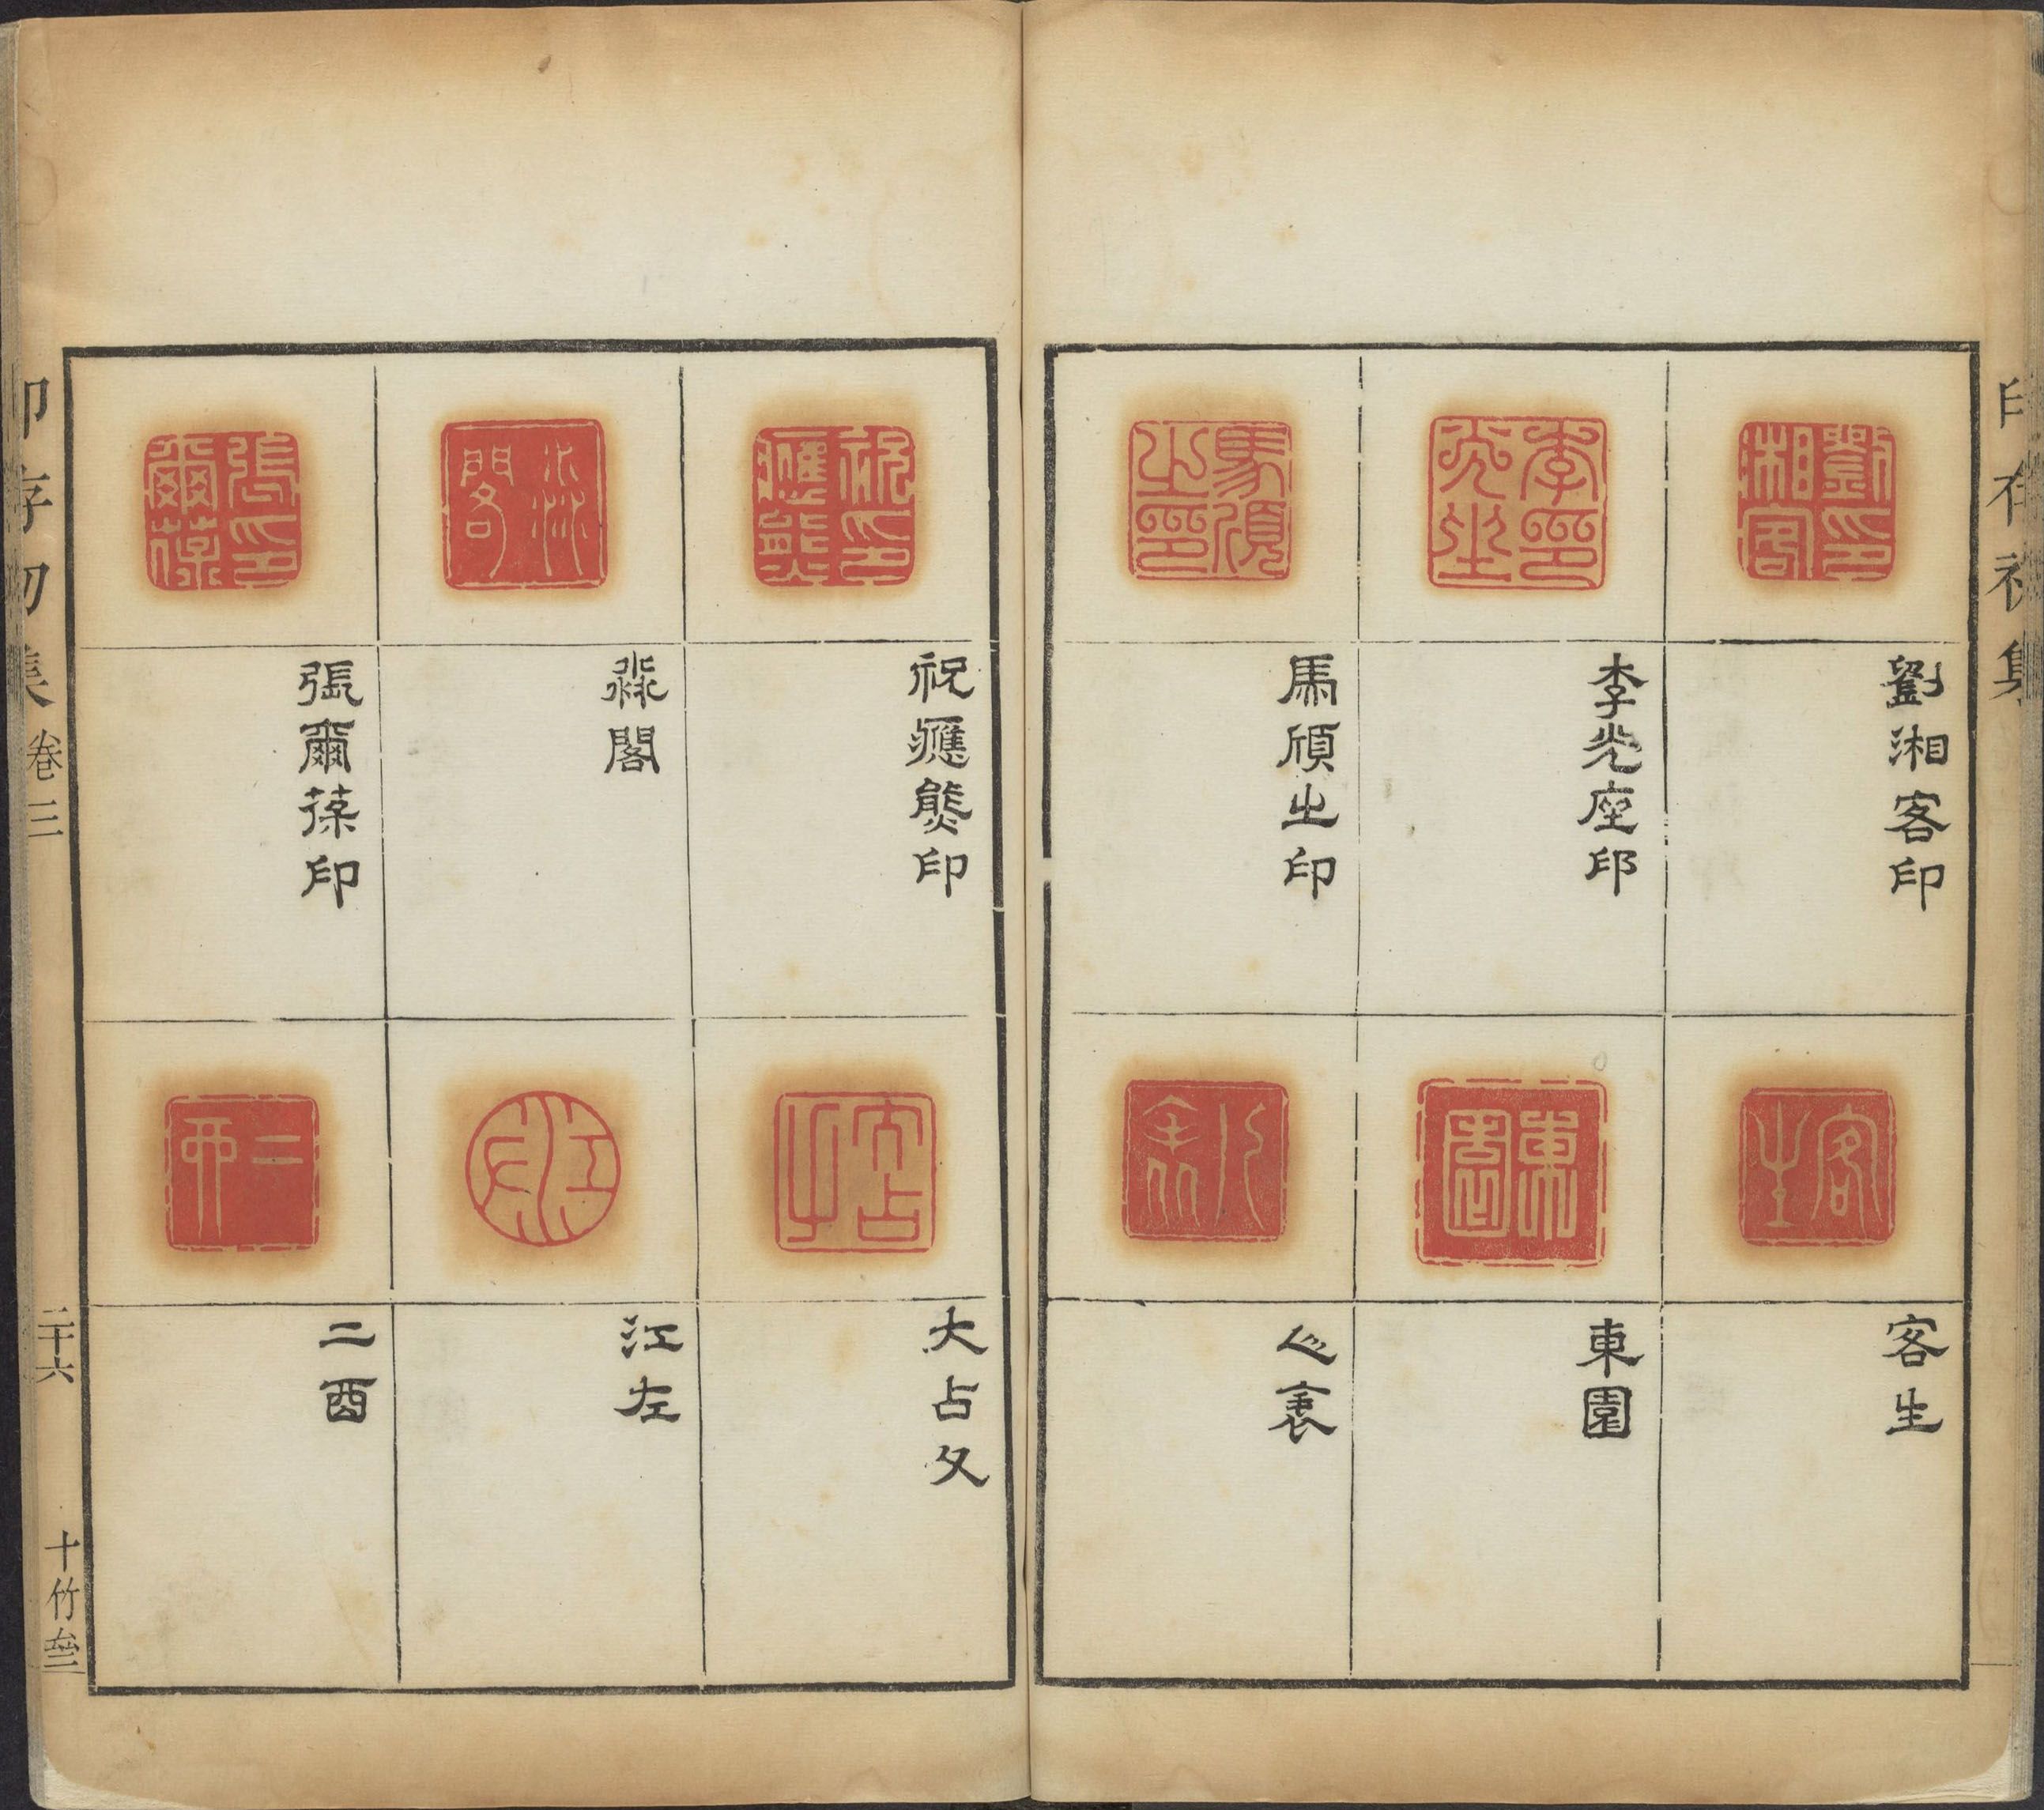 印存初集
劉湘客印
李光座印
馬頎㞢印
客生
東園
祝應熊印
淼閣
張爾葆印
大占父
江左
二酉
印存初集 卷三 二十六 十竹